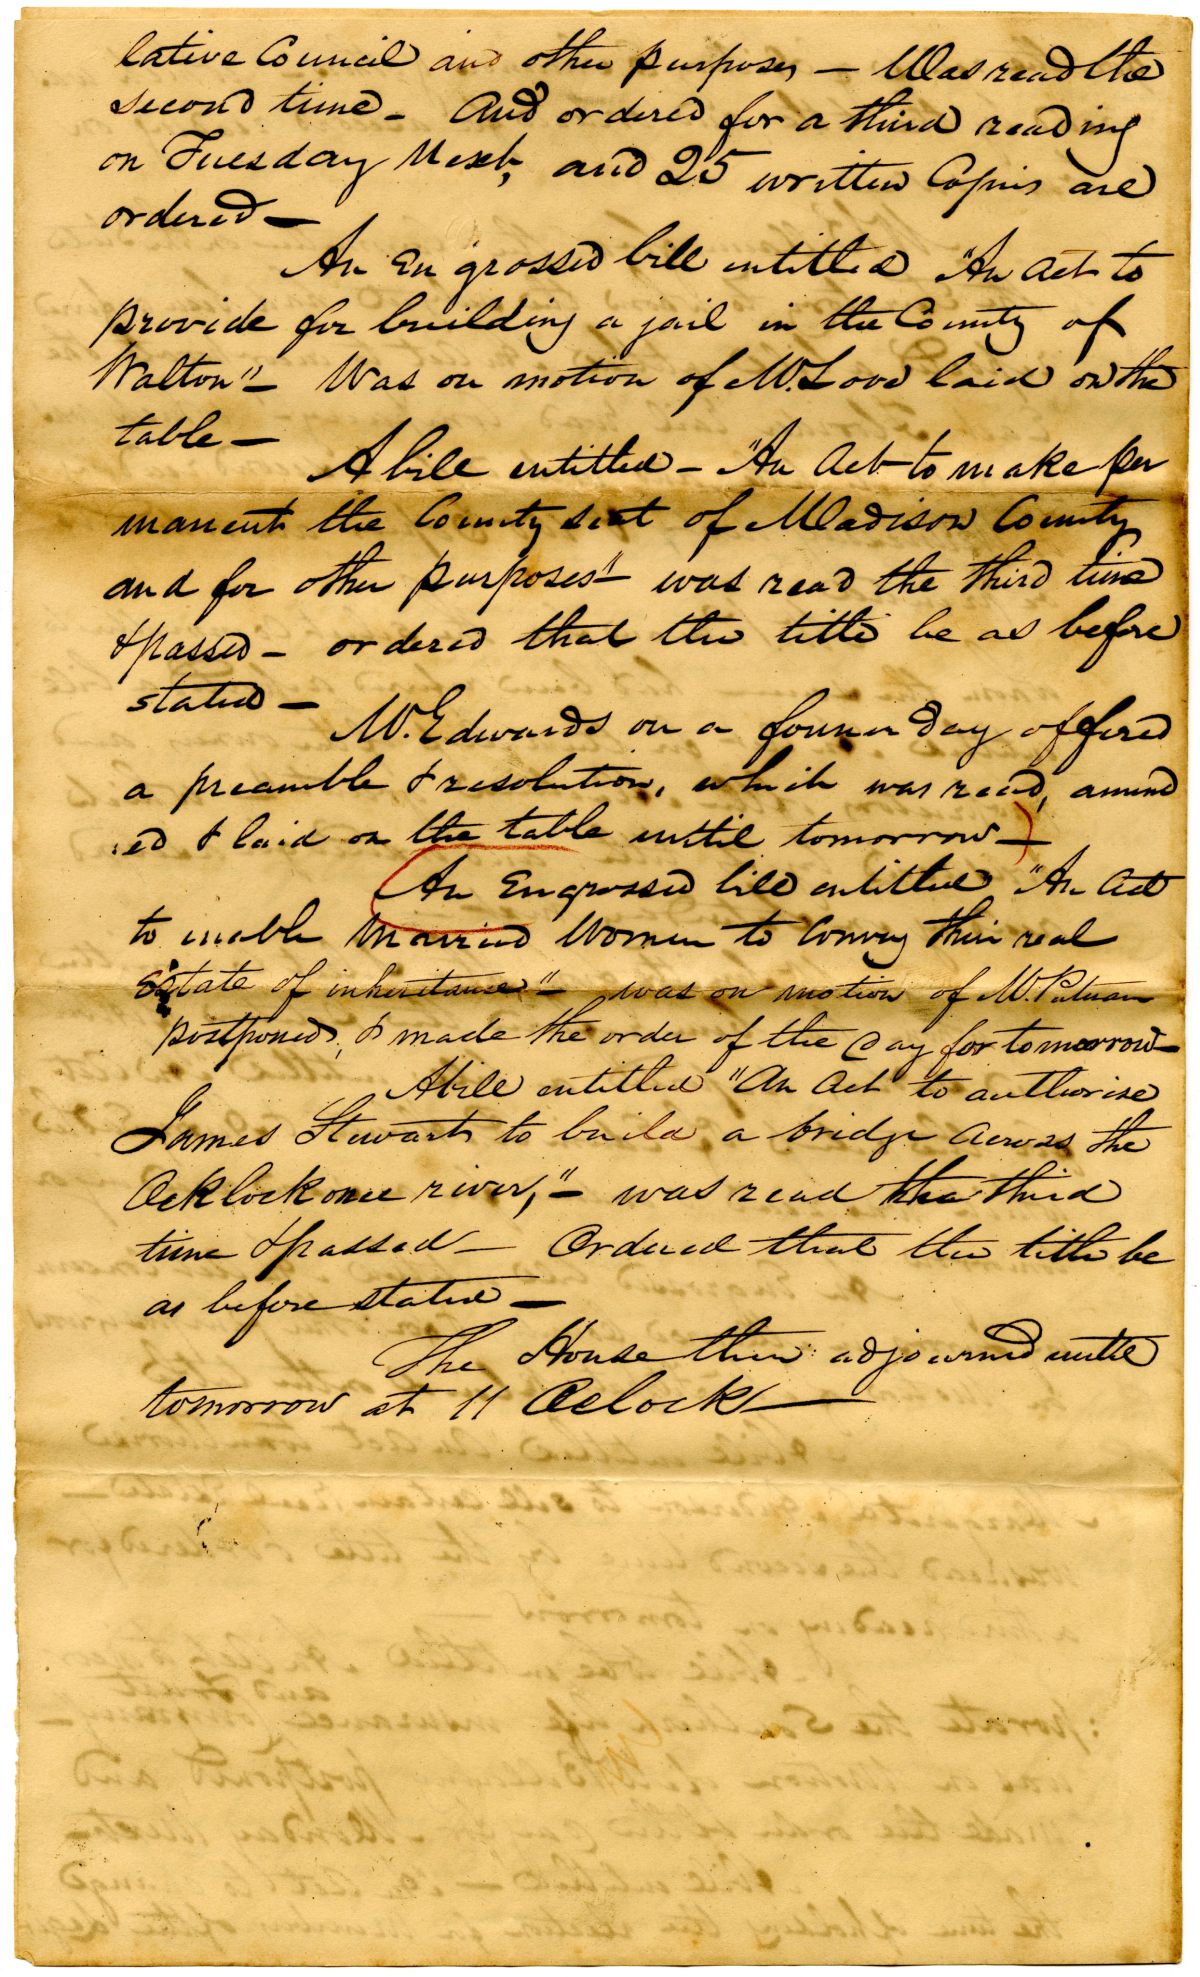 lative Council and other purposes – Was read the
second time – And ordered for a third reading
on Tuesday Next, and 25 written Copies are
ordered –
An Engrossed bill entitled "An Act to
provide for building a jail in the County of
Walton" – Was on motion of Mr. Love laid on the
table –
A bill entitled – "An Act to make per
manent the County seat of Madison County
and for other purposes" – was read the third time
& passed – ordered that the title be as before
stated –
Mr. Edwards on a former day offered
a preamble & resolution, which was read, amend
ed & laid on the table until tomorrow –
An Engrossed bill entitled "An Act
to enable Married Women to Convey their real
Estate of inheritance" – was on motion of Mr. Putnam
postponed, & made the order of the day for tomorrow –
A bill entitled "An Act to authorise
James Stewart to build a bridge across the
Ocklockonee river," – was read the third
time & passed – Ordered that the title be
as before stated –
The House then adjourned until
tomorrow at 11 Oclock –